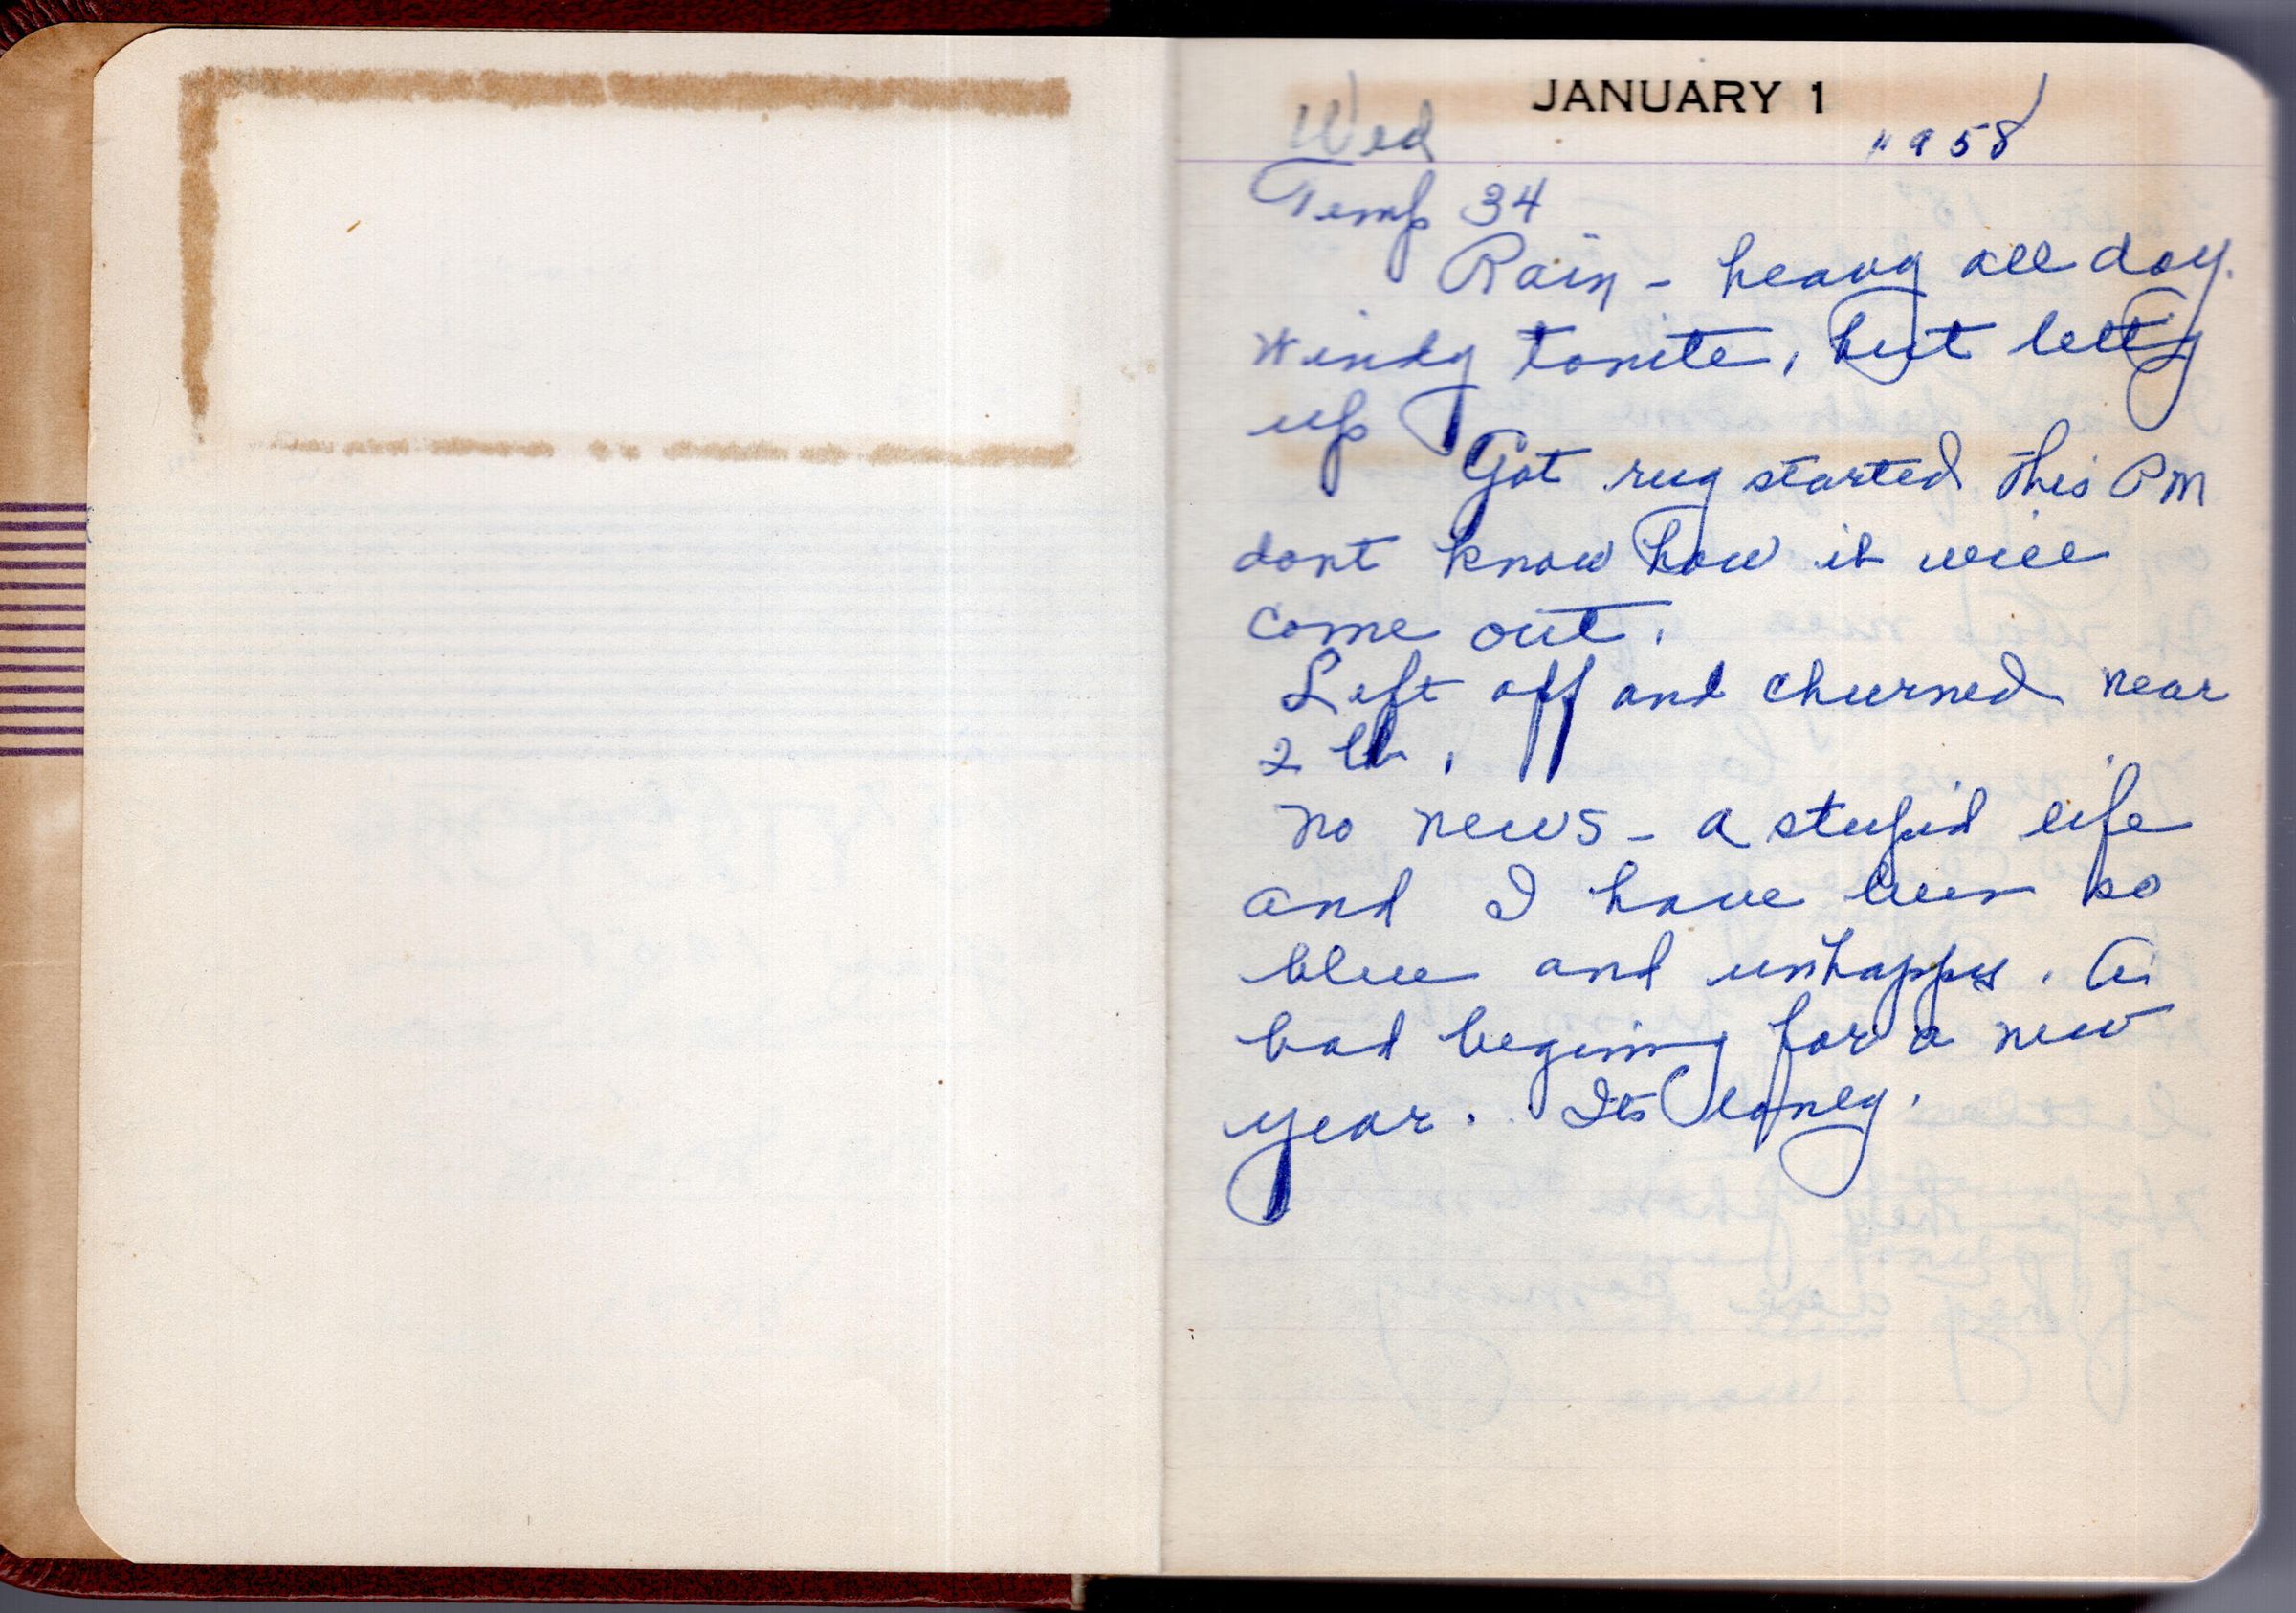 JANUARY 1
Wed 1958
Temp 34
Rain - heavy all day.
Windy tonite, but letty
up
Got rug started this PM
dont know how it will
come out.
Left off and churned near
2 lb.
No news - a stupid life
and I have been so
blue and unhappy. A
bad begining for a new
year. Its loney.